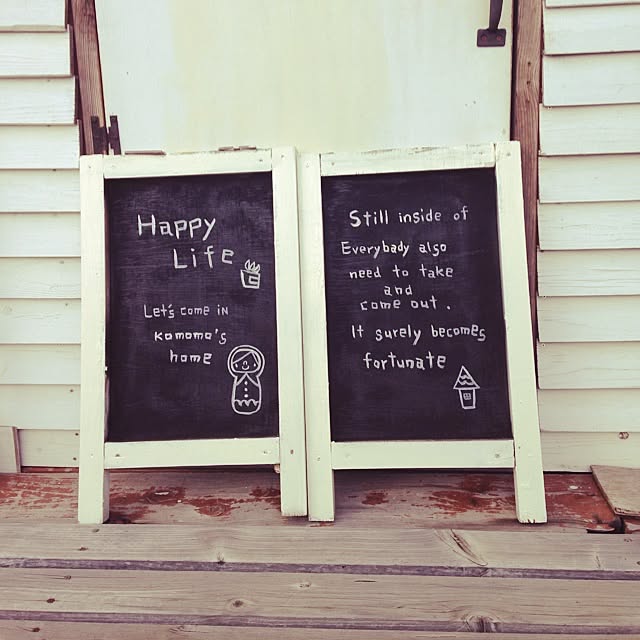 Happy
Life
Let's come in
komomo's
home
Still inside of
Everybady also
need to take
and
come out.
It surely becomes
fortunate